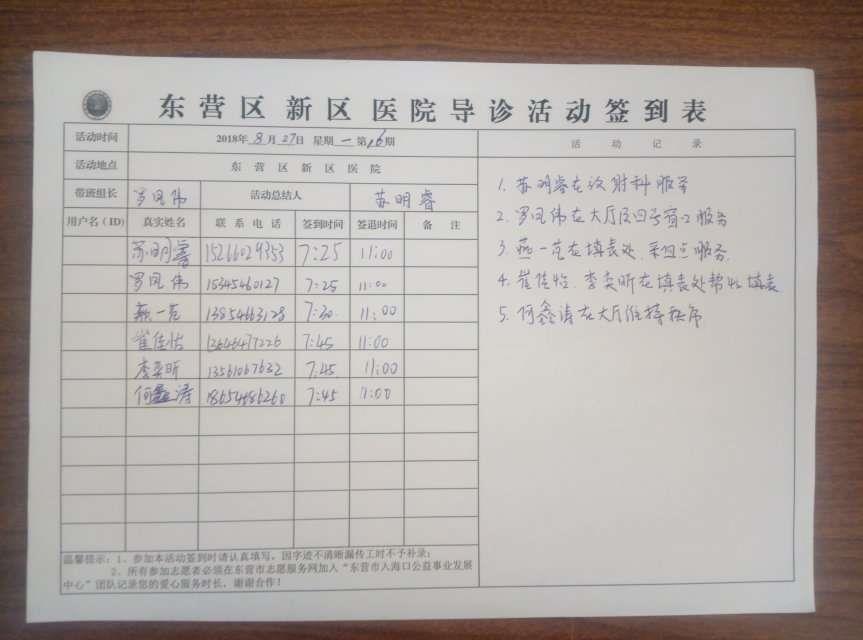 东营区新区医院导诊活动签到表
活动时间 2018年8月27日 星期一 第16期 活动记录
活动地点 东营区新区医院
带班组长 罗凤伟 活动总结人 苏明睿
用户名(ID) 真实姓名 联系电话 签到时间 签退时间 备注
苏明睿 15266029353 7:25 11:00
罗凤伟 15345460127 7:25 11:00
燕一范 13854663128 7:30. 11:00
崔佳怡 7:45 11:00
李奕昕 13561067632 7:45. 11:00
何鑫涛 18654686260 7:45 11:00
1. 苏明睿在 财科服务
2. 罗凤伟在大厅 四号窗口服务
3. 燕一范在填表处、采血点服务.
4. 崔佳怡、李奕昕在填表处帮忙填表
5. 何鑫涛在大厅维持秩序
温馨提示:1、参加本活动签到时请认真填写,因字迹不清晰漏传工时不予补录;
2、所有参加志愿者必须在东营市志愿服务网加入“东营市入海口公益事业发展
中心”团队记录您的爱心服务时长,谢谢合作!